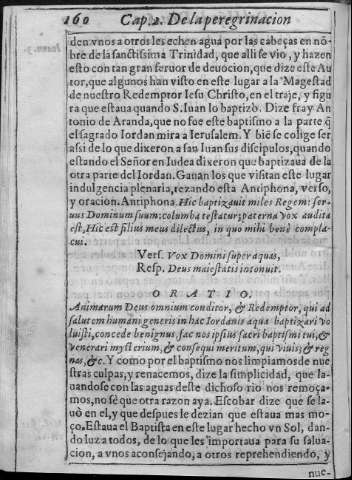 160 Cap. 2. De la peregrinacion
den vnos a otros les echen agua por las cabeças en nõ-
bre de la sanctissima Trinidad, que alli se vio, y hazen
esto con tan gran feruor de deuocion, que dize este Au
tor, que algunos han visto en este lugar a la Magestad
de nuestro Redemptor Iesu Christo, en el traje, y figu
ra que estaua quando S. Iuan lo baptizò. Dize fray An
tonio de Aranda, que no fue este baptismo a la parte q̃
el sagrado Iordan mira a Ierusalem. Y biẽ se colige ser
assi de lo que dixeron a sau Iuan sus discipulos, quando
estando el Señor en Iudea dixeron que baptizaua de la
otra parte del Iordan. Ganan los que visitan este lugar
indulgencia plenaria, rezando esta Antiphona, verso,
y oracion. Antiphona. Hic baptizauit miles Regem: ser
uus Dominum suum: columba testatur; paterna vox audita
est, Hic est filius meus dilectus, in quo mihi benè compla-
cui.
Vers. Vox Domini super aquas,
Resp. Deus maiestatis intonuit.
ORATIO.
Animarum Deus omnium conditor, & Redemptor, qui ad
salutem humani generis in hac Iordanis aqua baptizari vo
luisti, concede benignus, fac nos ipsius sacri baptismi tui, &
venerari mysterium, & consequi meritum, qui viuis, & reg
nas, &c. Y como por el baptismo nos limpiamos de nue
stras culpas, y renacemos, dize la simplicidad, que la-
uandose con las aguas deste dichoso rio nos remoça-
mos, no sè que otra razon aya. Escobar dize que se la-
uò en el, y que despues le dezian que estaua mas mo-
ço. Estaua el Baptista en este lugar hecho vn Sol, dan-
do luz a todos, de lo que les importaua para su salua-
cion, a vnos aconsejando, a otros reprehendiendo, y
nue-